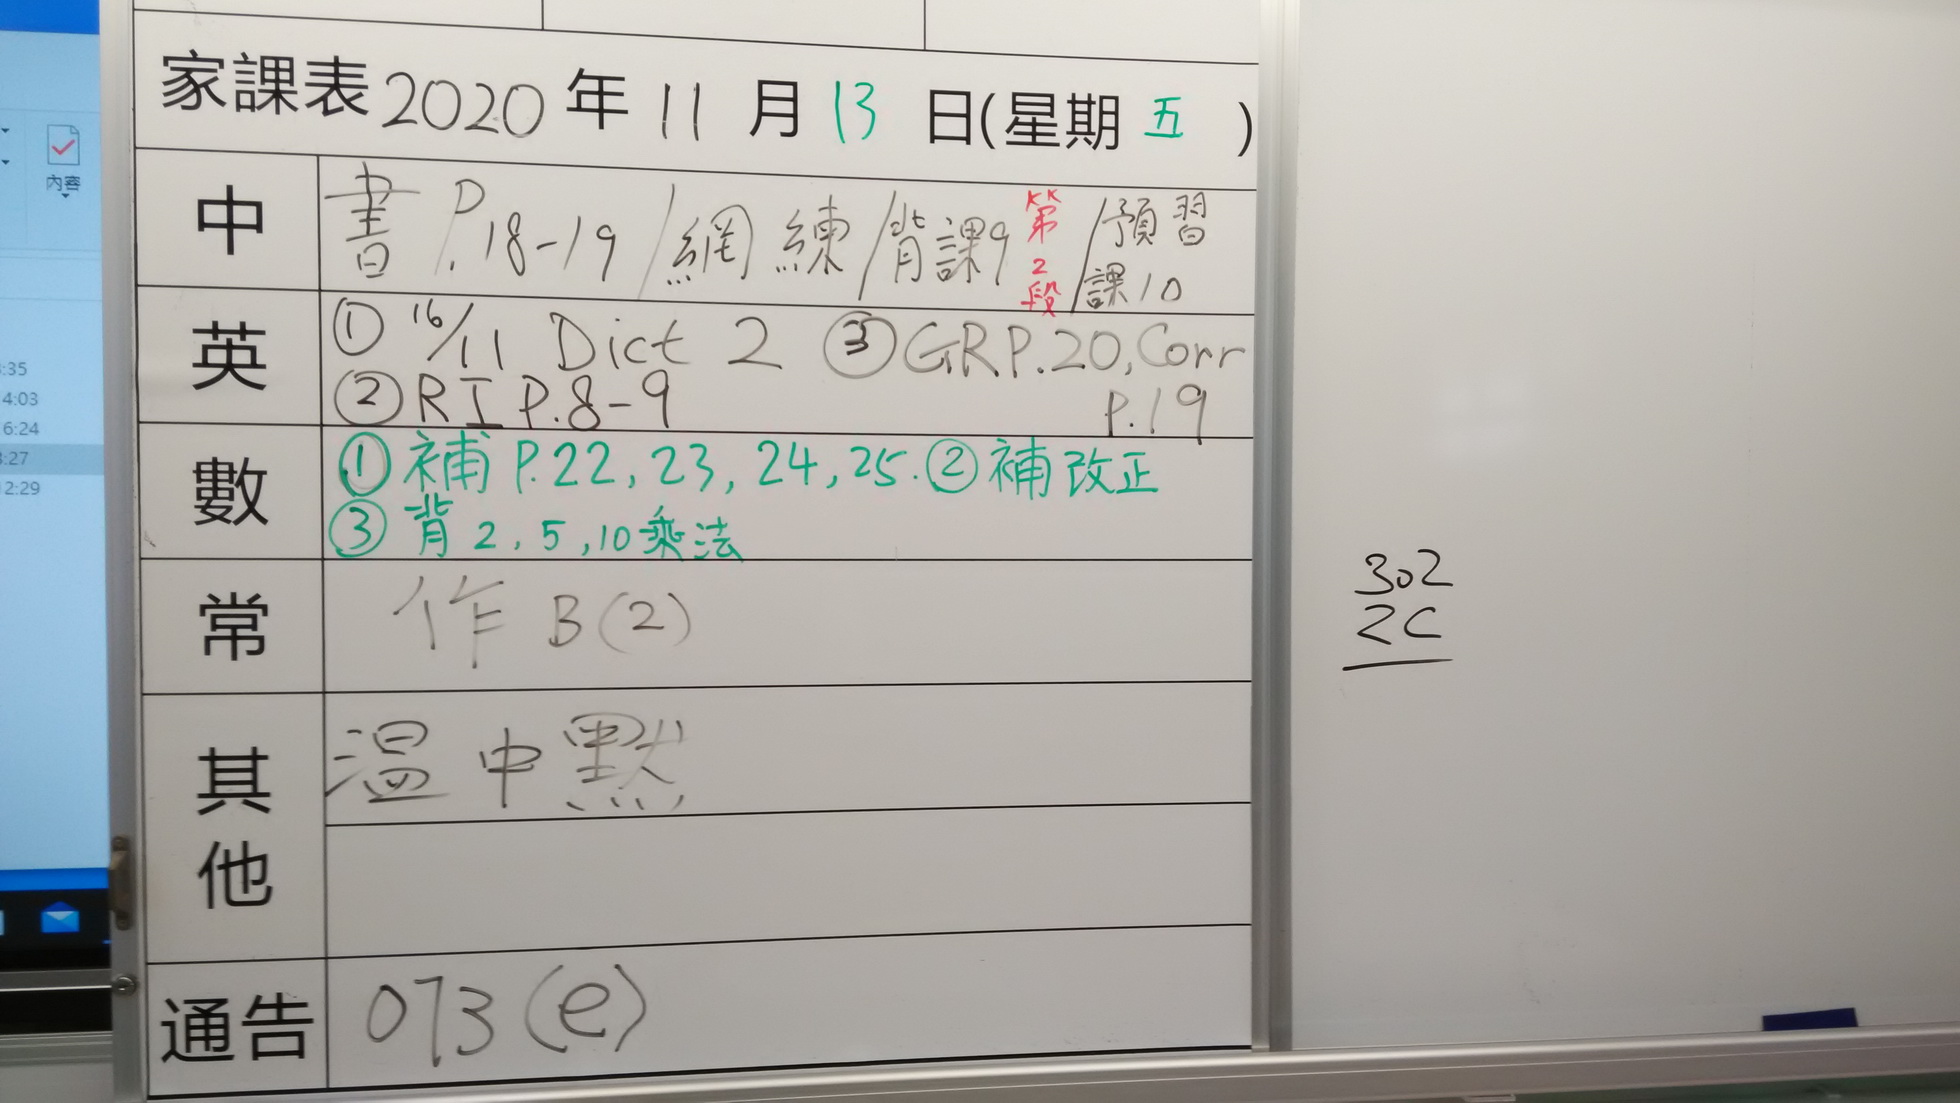 內容
:35
4:03
6:24
:27
2:29
家課表 2020 年 11 月 13 日(星期 五 )
中
書 P.18-19/網練/背課9 第2段/預習課10
英
① 16/11 Dict 2 ③ GR P.20, Corr P.19
② RI P.8-9
數
① 補 P.22, 23, 24, 25. ② 補改正
③ 背 2, 5, 10 乘法
常
作 B(2)
其他
溫中默
通告
073(e)
302
2C